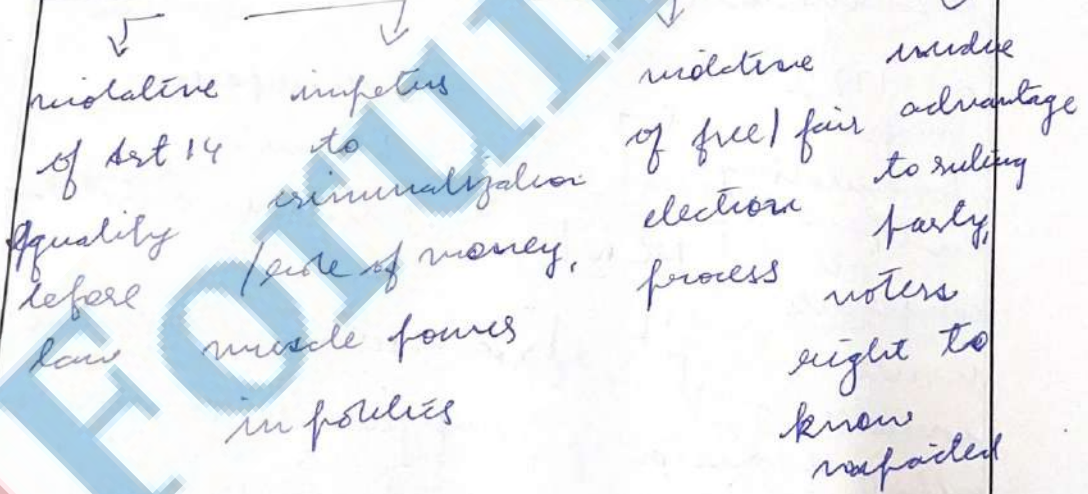 violative
of Art 14
Equality
before
law
impetus
to
criminalization
/role of money,
muscle power
in politics
violative
of free/fair
election
process
undue
advantage
to ruling
party,
voters
right to
know
Forum